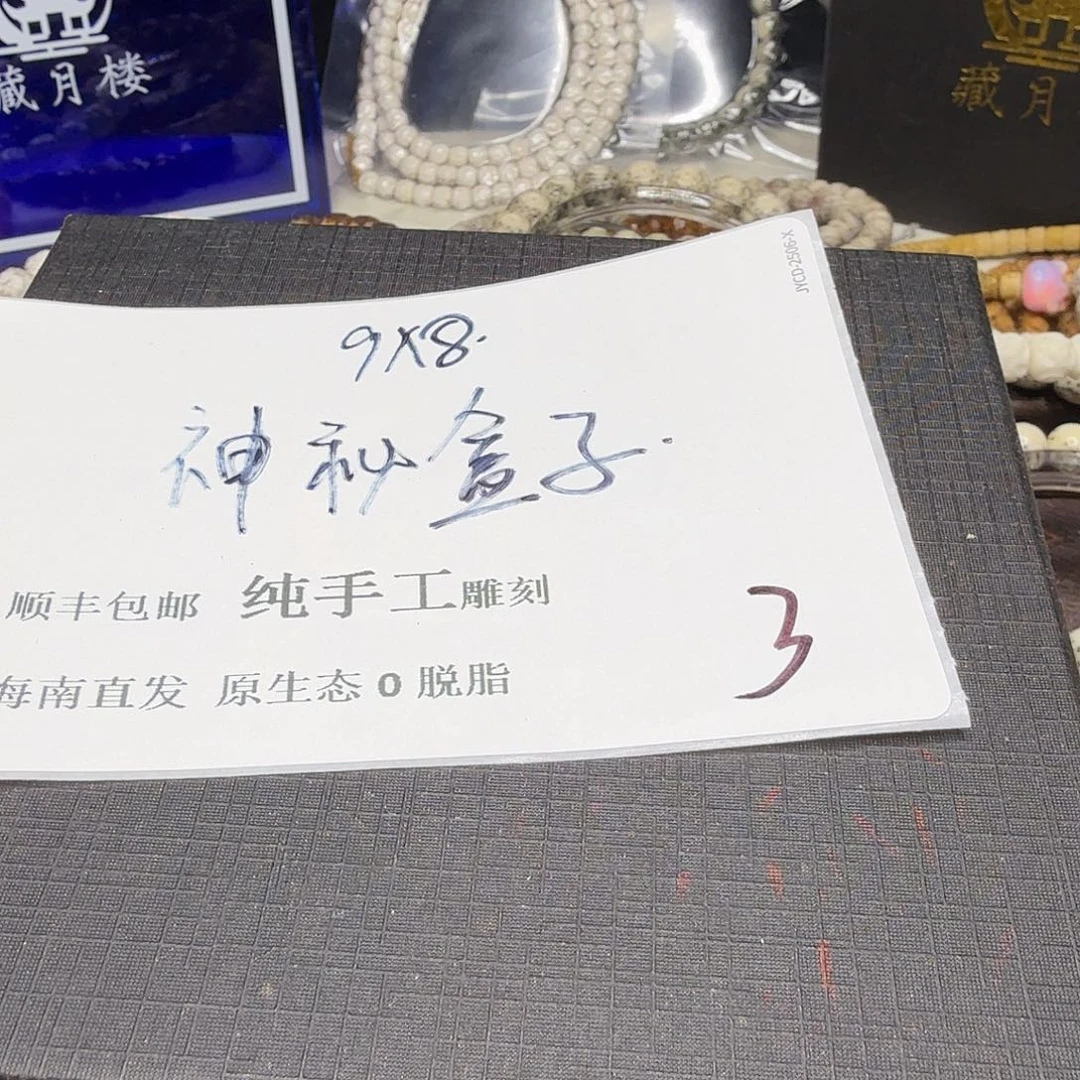 藏月楼
藏月
JYCD-2506-X
9X8.
神秘盒子.
顺丰包邮 纯手工雕刻
海南直发 原生态0脱脂
3